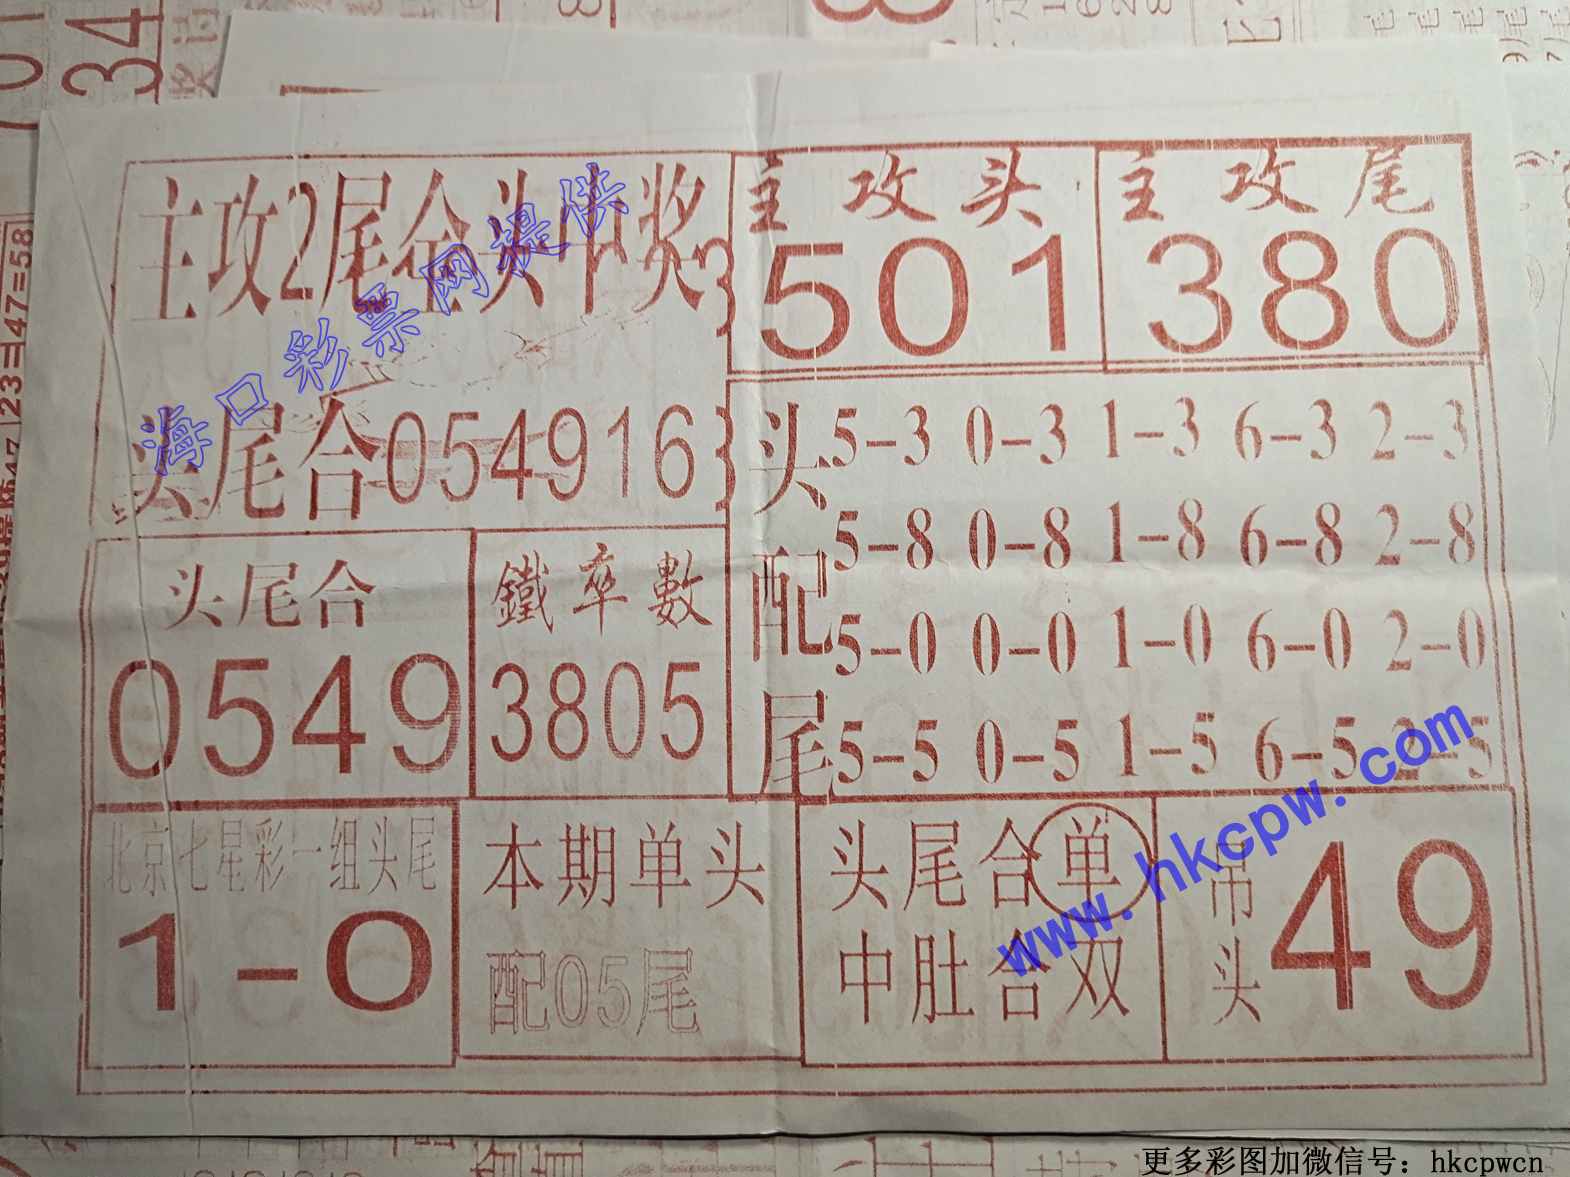 主攻2尾全头中奖
头尾合054916
主攻头
501
主攻尾
380
头配尾
5-3 0-3 1-3 6-3 2-3
5-8 0-8 1-8 6-8 2-8
5-0 0-0 1-0 6-0 2-0
5-5 0-5 1-5 6-5 2-5
头尾合
0549
鐵率數
3805
北京七星彩一组头尾
1-0
本期单头
配05尾
头尾合单
中肚合双
吊头
49
海口彩票网提供
www.hkcpw.com
23=47=58
34
更多彩图加微信号：hkcpwcn